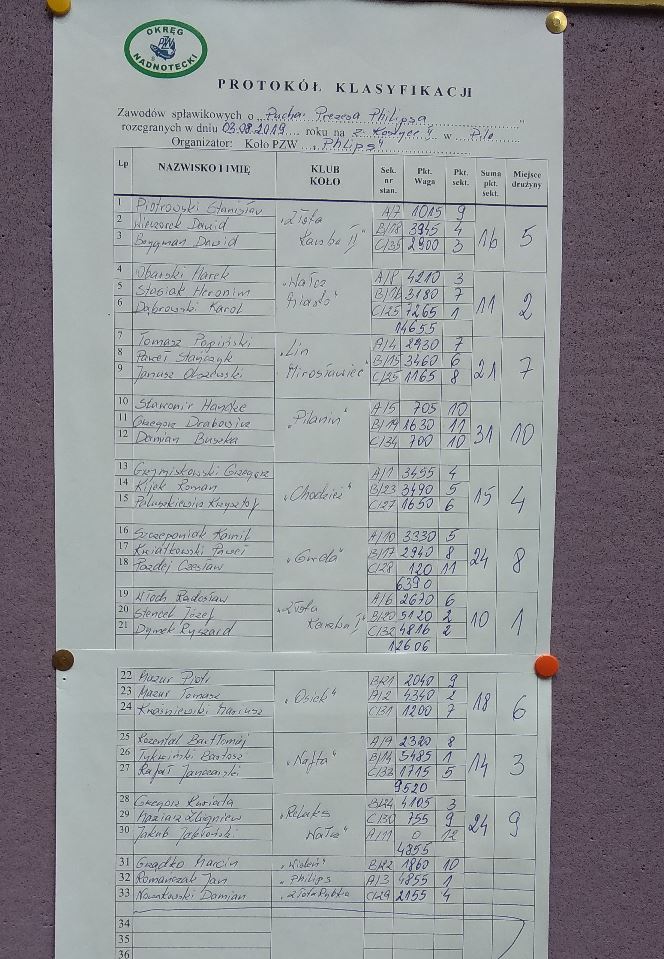 OKRĘG
PZW
NADNOTECKI
PROTOKÓŁ KLASYFIKACJI
Zawodów spławikowych o Puchar Prezesa Philipsa
rozegranych w dniu 03.08.2019 roku na z. Koszyce" w Pile
Organizator: Koło PZW „Philips"
Lp NAZWISKO I IMIĘ KLUB KOŁO Sek. nr stan. Pkt. Waga Pkt. sekt. Suma pkt. sekt. Miejsce drużyny
1 Piotrowski Stanisław „Złota A/7 1015 9
2 Wieczorek Dawid Karaba II" B/18 3945 4 16 5
3 Bergman Dawid C/35 2900 3
4 Obarski Marek „Wałcz A/8 4210 3
5 Stasiak Heronim Miasto" B/16 3180 7 11 2
6 Dąbrowski Karol C/25 7265 1
14655
7 Tomasz „Lin A/4 2930 7
8 Paweł Stańczyk Mirosławiec" B/15 3460 6 21 7
9 Janusz C/25 1165 8
10 Sławomir Handke A/5 705 10
11 Grzegorz „Pilanin" B/19 1630 11 31 10
12 Damian C/34 700 10
13 Grzegorz A/1 3455 4
14 Kijek Roman „Chodzież" B/23 3490 5 15 4
15 Krzysztof C/27 1650 6
16 Szczepaniak Kamil A/10 3330 5
17 Kwiatkowski Paweł „Gwda" B/17 2940 8 24 8
18 Czesław C/28 120 11
6390
19 Radosław „Złota A/6 2670 6
20 Stencel Józef Karaba I" B/20 5120 2 10 1
21 Dymek Ryszard C/32 4816 2
12606
22 Mazur Piotr B/21 2040 9
23 Mazur Tomasz „Osiek" A/2 4340 2 18 6
24 Kraśniewski Mariusz C/31 1200 7
25 Rozental Bartłomiej A/9 2320 8
26 Bartosz „Nafta" B/14 5485 1 14 3
27 Rafał Janczarski C/33 1715 5
9520
28 Grzegorz „Relaks B/24 4105 3
29 Zbigniew Wałcz" C/30 755 9 24 9
30 Jakub Jabłoński A/11 0 12
4855
31 Grądko Marcin B/22 1860 10
32 Romańczak Jan „Philips A/3 4855 1
33 Nowakowski Damian „Złota Rybka C/29 2155 4
34
35
36